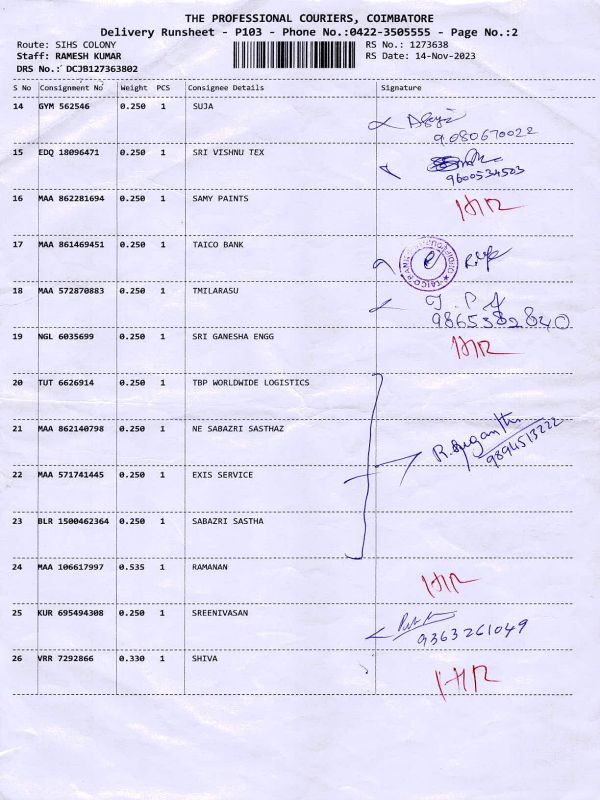 THE PROFESSIONAL COURIERS, COIMBATORE
Delivery Runsheet - P103 - Phone No.:0422-3505555 - Page No.:2
Route: SIHS COLONY RS No.: 1273638
Staff: RAMESH KUMAR RS Date: 14-Nov-2023
DRS No.: DCJB127363802
S No Consignment No Weight PCS Consignee Details Signature
14 GYM 562546 0.250 1 SUJA
9080670022
15 EDQ 18096471 0.250 1 SRI VISHNU TEX
9600534503
16 MAA 862281694 0.250 1 SAMY PAINTS
17 MAA 861469451 0.250 1 TAICO BANK
TAICO BANK
18 MAA 572870883 0.250 1 TMILARASU
9865382840
19 NGL 6035699 0.250 1 SRI GANESHA ENGG
20 TUT 6626914 0.250 1 TBP WORLDWIDE LOGISTICS
21 MAA 862140798 0.250 1 NE SABAZRI SASTHAZ
9894513222
22 MAA 571741445 0.250 1 EXIS SERVICE
23 BLR 1500462364 0.250 1 SABAZRI SASTHA
24 MAA 106617997 0.535 1 RAMANAN
25 KUR 695494308 0.250 1 SREENIVASAN
9363261049
26 VRR 7292866 0.330 1 SHIVA